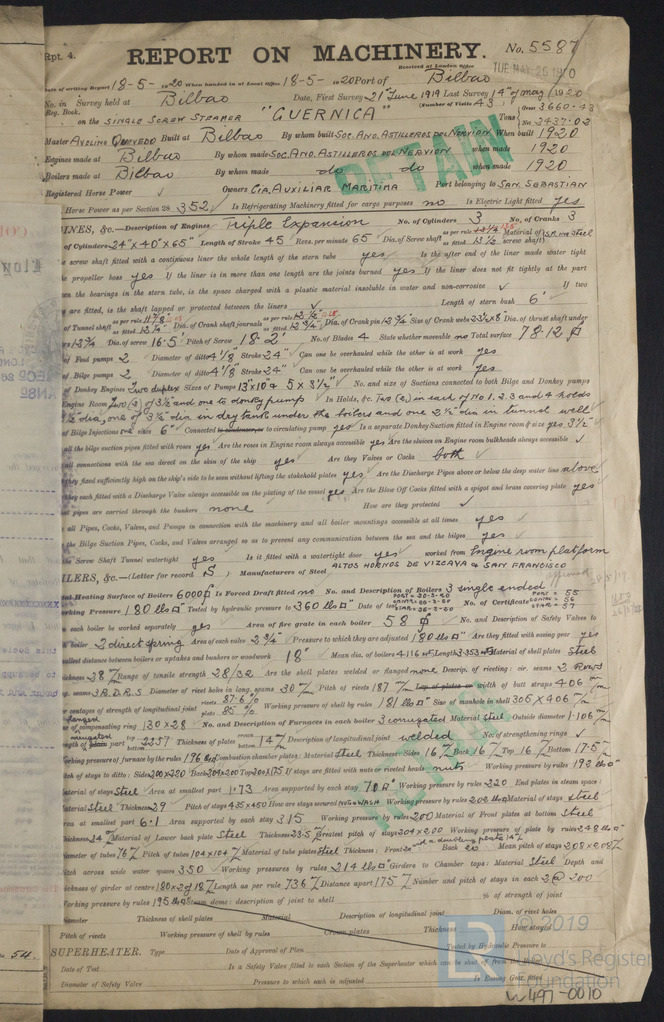 Rpt. 4.
REPORT ON MACHINERY. No. 5587
Received at London Office TUE MAY 25 1920
Date of writing Report 18-5-1920 When handed in at Local Office 18-5-1920 Port of Bilbao
No. in Survey held at Bilbao Date, First Survey 21st June 1919 Last Survey 14th of may 1920
Reg. Book. (Number of Visits 43)
on the SINGLE SCREW STEAMER "GUERNICA" Tons Gross 3660.43 Net 2437.02
Master Built at Bilbao By whom built Soc. Ano. Astilleros del Nervion When built 1920
Engines made at Bilbao By whom made Soc. Ano. Astilleros del Nervion when made 1920
Boilers made at Bilbao By whom made do do when made 1920
Registered Horse Power Owners Cia. Auxiliar Maritima Port belonging to San Sebastian
Horse Power as per Section 28 352 Is Refrigerating Machinery fitted for cargo purposes no Is Electric Light fitted yes
INES, &c.—Description of Engines Triple Expansion No. of Cylinders 3 No. of Cranks 3
of Cylinders 24" x 40" x 65" Length of Stroke 45 Revs. per minute 65 Dia. of Screw shaft as per rule as fitted 13 1/2 Material of screw shaft Steel
screw shaft fitted with a continuous liner the whole length of the stern tube yes Is the after end of the liner made water tight
propeller boss yes If the liner is in more than one length are the joints burned yes If the liner does not fit tightly at the part
en the bearings in the stern tube, is the space charged with a plastic material insoluble in water and non-corrosive ✓ If two
are fitted, is the shaft lapped or protected between the liners ✓ Length of stern bush 6'
of Tunnel shaft as per rule as fitted 12 1/4" Dia. of Crank shaft journals as per rule 12 1/2" as fitted 12 3/4" Dia. of Crank pin 12 3/4" Size of Crank webs 23 1/2 x 8" Dia. of thrust shaft under
rs 12 3/4 Dia. of screw 16-5' Pitch of Screw 18-2" No. of Blades 4 State whether moveable no Total surface 78.12
of Feed pumps 2 Diameter of ditto 4 1/8" Stroke 24" Can one be overhauled while the other is at work yes
of Bilge pumps 2 Diameter of ditto 4 1/8" Stroke 24" Can one be overhauled while the other is at work yes
of Donkey Engines Two duplex Sizes of Pumps 13" x 10" & 5 x 3 1/2" No. and size of Suctions connected to both Bilge and Donkey pumps
Engine Room Two (2) of 3 1/2 and one to donkey pump In Holds, &c. Two (2) in each of No 1, 2, 3 and 4 holds
1/2" dia, one of 3 1/2" dia in dry tank under the boilers and one 2 1/2" dia in tunnel well
of Bilge Injections one sizes 6" Connected to circulating pump yes Is a separate Donkey Suction fitted in Engine room & size yes 3 1/2"
all the bilge suction pipes fitted with roses yes Are the roses in Engine room always accessible yes Are the sluices on Engine room bulkheads always accessible ✓
all connections with the sea direct on the skin of the ship yes Are they Valves or Cocks both
they fixed sufficiently high on the ship's side to be seen without lifting the stokehold plates yes Are the Discharge Pipes above or below the deep water line above
they each fitted with a Discharge Valve always accessible on the plating of the vessel yes Are the Blow Off Cocks fitted with a spigot and brass covering plate yes
pipes are carried through the bunkers none How are they protected ✓
all Pipes, Cocks, Valves, and Pumps in connection with the machinery and all boiler mountings accessible at all times yes
the Bilge Suction Pipes, Cocks, and Valves arranged so as to prevent any communication between the sea and the bilges yes
the Screw Shaft Tunnel watertight yes Is it fitted with a watertight door yes worked from Engine room platform
ILERS, &c.—(Letter for record S) Manufacturers of Steel ALTOS HORNOS DE VIZCAYA & SAN FRANCISCO
al Heating Surface of Boilers 6000 Is Forced Draft fitted no No. and Description of Boilers 3 single ended
orking Pressure 180 lbs Tested by hydraulic pressure to 360 lbs Date of test No. of Certificate PORT = 55 CENTRE = 56 STAR = 57
each boiler be worked separately yes Area of fire grate in each boiler 58 No. and Description of Safety Valves to
boiler 2 direct spring Area of each valve 2 3/4" Pressure to which they are adjusted 180 lbs Are they fitted with easing gear yes
mallest distance between boilers or uptakes and bunkers or woodwork 18" Mean dia. of boilers 4116 Length 3353 Material of shell plates Steel
hickness 28 Range of tensile strength 28/32 Are the shell plates welded or flanged none Descrip. of riveting: cir. seams 2 Rows
ng. seams 3.R.D.B.S Diameter of rivet holes in long. seams 30 Pitch of rivets 187 Lap of plates or width of butt straps 406
centages of strength of longitudinal joint rivets 87.6% plate 85% Working pressure of shell by rules 181 lbs Size of manhole in shell 305 x 406
of compensating ring flanged 130 x 28 No. and Description of Furnaces in each boiler 3 corrugated Material Steel Outside diameter 1.106
ngth of plain part corrugated top bottom 2257 Thickness of plates crown bottom 14 Description of longitudinal joint welded No. of strengthening rings ✓
orking pressure of furnace by the rules 196 lbs Combustion chamber plates: Material Steel Thickness: Sides 16 Back 16 Top 16 Bottom 17.5
tch of stays to ditto: Sides 200 x 220 Back 204 x 200 Top 200 x 175 If stays are fitted with nuts or riveted heads nuts Working pressure by rules 192 lbs
aterial of stays Steel Area at smallest part 1.73 Area supported by each stay 70 Working pressure by rules 220 End plates in steam space:
aterial Steel Thickness 29 Pitch of stays 435 x 450 How are stays secured NUTS & WASH Working pressure by rules 202 lbs Material of stays Steel
rea at smallest part 6.1 Area supported by each stay 315 Working pressure by rules 200 Material of Front plates at bottom Steel
hickness 24 Material of Lower back plate Steel Thickness 23.5 Greatest pitch of stays 204 x 200 Working pressure of plate by rules 248 lbs
iameter of tubes 76 Pitch of tubes 104 x 104 Material of tube plates Steel Thickness: Front 26 Back 20 Mean pitch of stays 208 x 208
itch across wide water spaces 350 Working pressures by rules 214 lbs Girders to Chamber tops: Material Steel Depth and
hickness of girder at centre 180 x 2 of 18 Length as per rule 736 Distance apart 175 Number and pitch of stays in each 2 @ 200
Working pressure by rules 195 lbs Steam dome: description of joint to shell % of strength of joint
iameter Thickness of shell plates Material Description of longitudinal joint Diam. of rivet holes
Pitch of rivets Working pressure of shell by rules Crown plates Thickness How stayed
SUPERHEATER. Type Date of Approval of Plan Tested by Hydraulic Pressure to
Date of Test Is a Safety Valve fitted to each Section of the Superheater which can be shut off from
Diameter of Safety Valve Pressure to which each is adjusted Is Easing Gear fitted
© 2019
Lloyd's Register
Foundation
W497-0010
RETAIN
54.